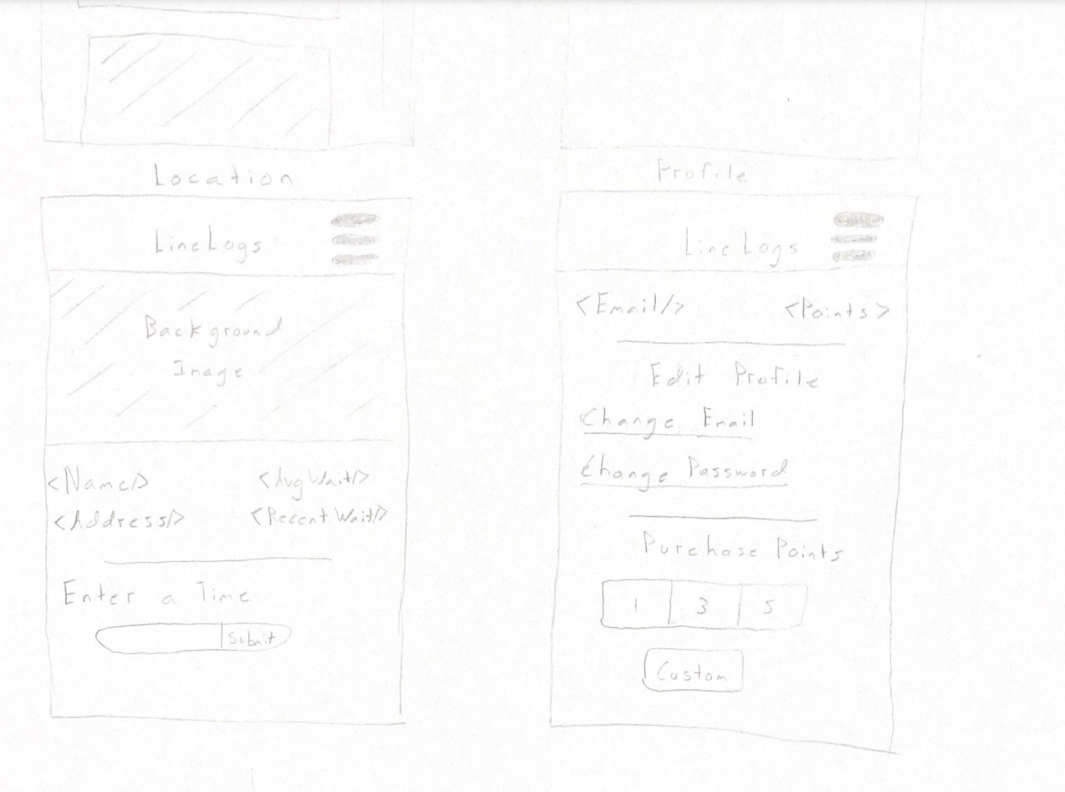 Location
LineLogs
Background
Image
<Name/>
<AvgWait/>
<Address/>
<RecentWait/>
Enter a Time
Submit
Profile
LineLogs
<Email/>
<Points>
Edit Profile
Change Email
Change Password
Purchase Points
1 3 5
Custom